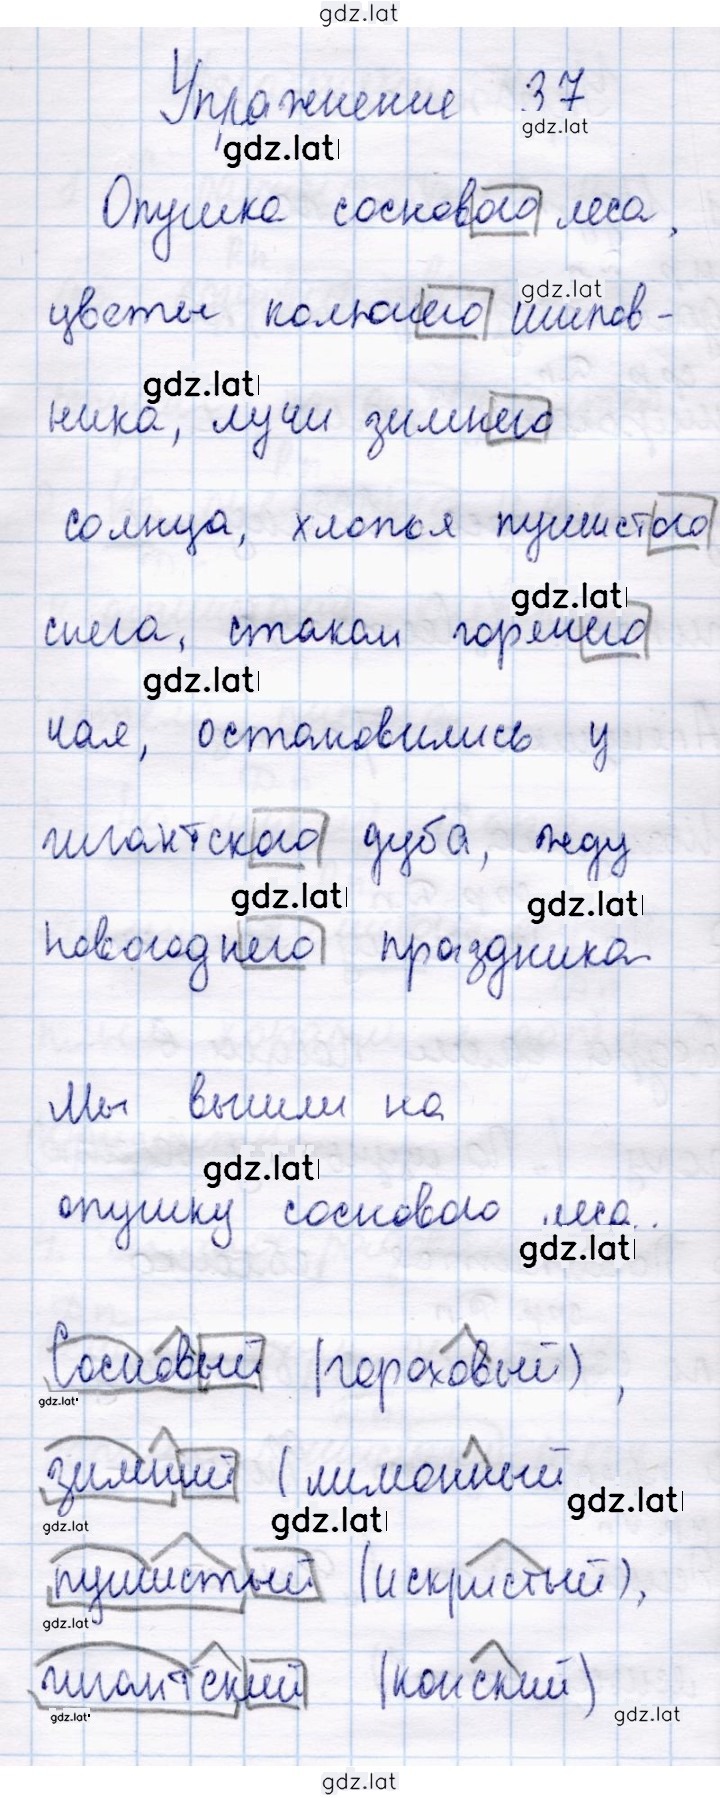 gdz.lat
Упражнение 37
gdz.lat
gdz.lat
Опушка соснового леса,
gdz.lat
цветы колючего шипов-
gdz.lat
ника, лучи зимнего
солнца, хлопья пушистого
gdz.lat
снега, стакан горячего
gdz.lat
чая, остановились у
гигантского дуба, жду
gdz.lat gdz.lat
новогоднего праздника
Мы вышли на
gdz.lat
опушку соснового леса.
gdz.lat
Сосновый (гороховый),
gdz.lat
зимний (лимонный
gdz.lat gdz.lat gdz.lat
пушистый (искристый),
gdz.lat
гигантский (конский)
gdz.lat gdz.lat
gdz.lat